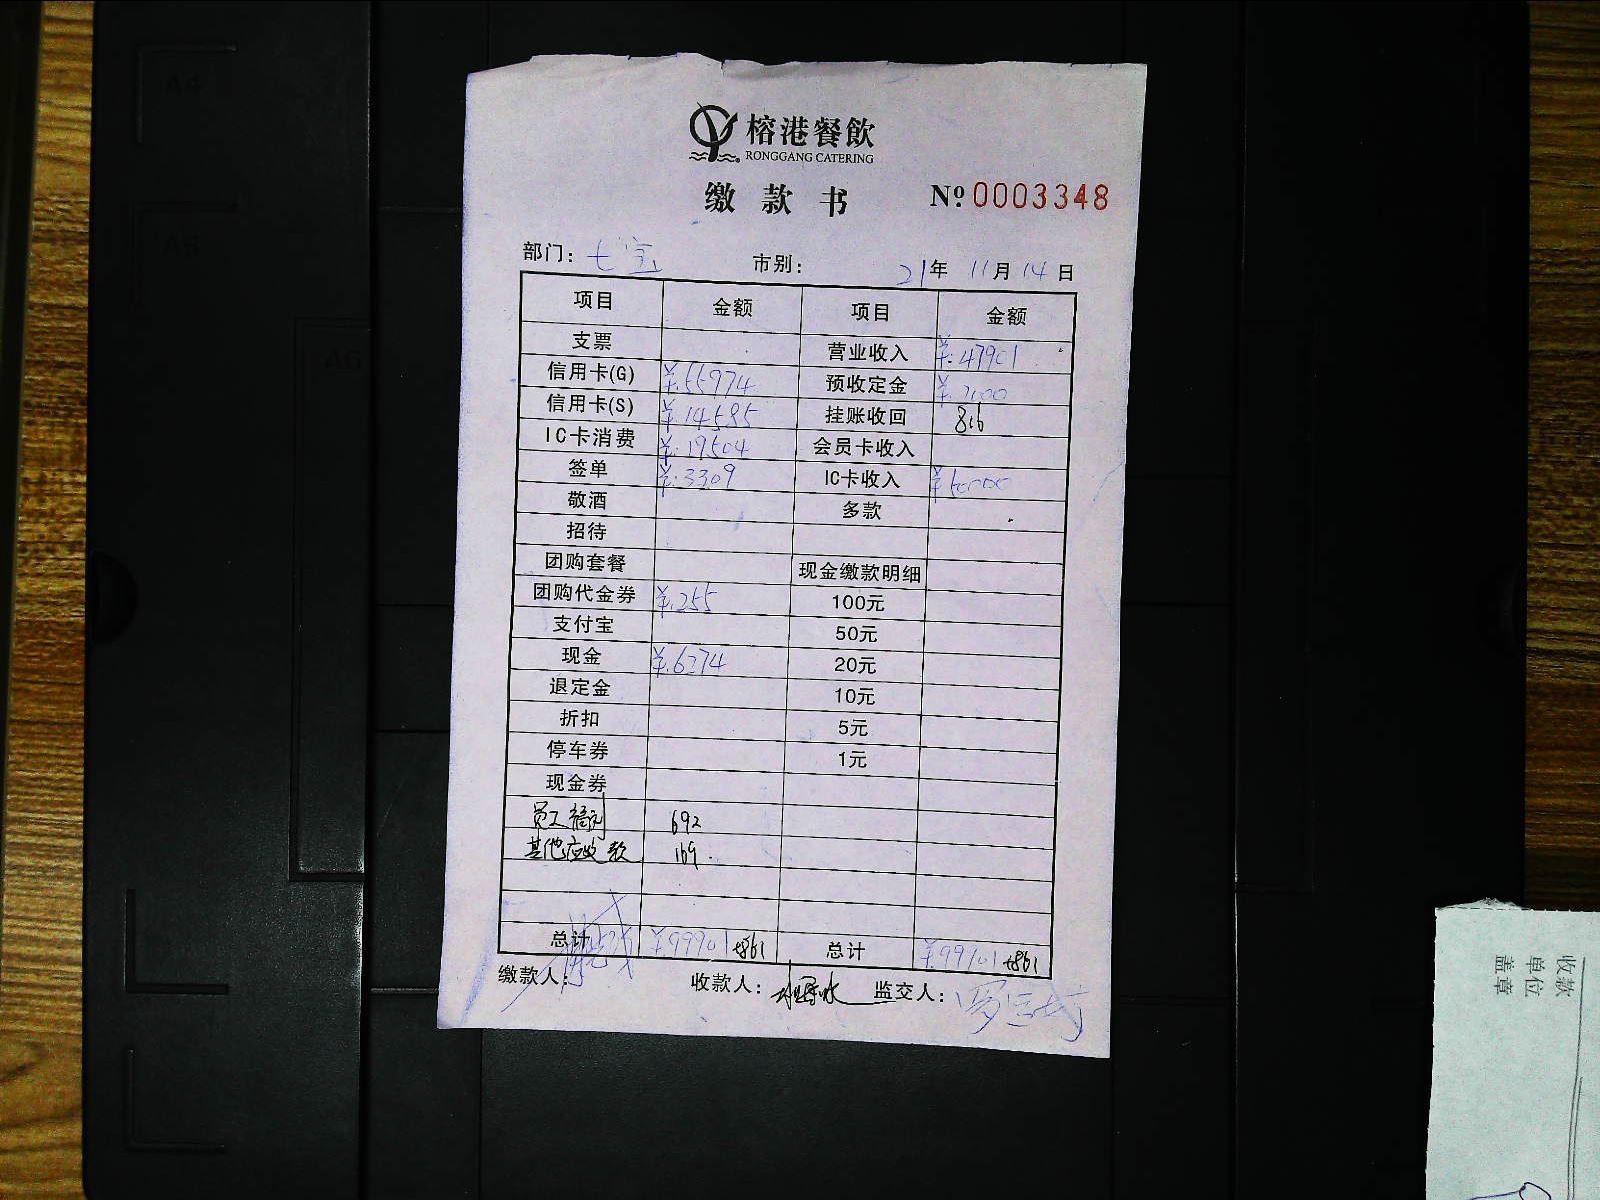 榕港餐飲
RONGGANG CATERING
缴款书 Nº 0003348
部门: 七宝 市别: 21年 11月 14日
项目 金额 项目 金额
支票 营业收入 ¥:47901
信用卡(G) ¥:55974 预收定金 ¥:2000
信用卡(S) ¥:14585 挂账收回 816
IC卡消费 ¥:19504 会员卡收入
签单 ¥:3309 IC卡收入 ¥50000
敬酒 多款
招待
团购套餐 现金缴款明细
团购代金券 ¥:255 100元
支付宝 50元
现金 ¥:6274 20元
退定金 10元
折扣 5元
停车券 1元
现金券
员工福利 692
其他应收款 169
总计 ¥99901 +861 总计 ¥99901 +861
缴款人: 收款人: 监交人:
收款
单位
盖章